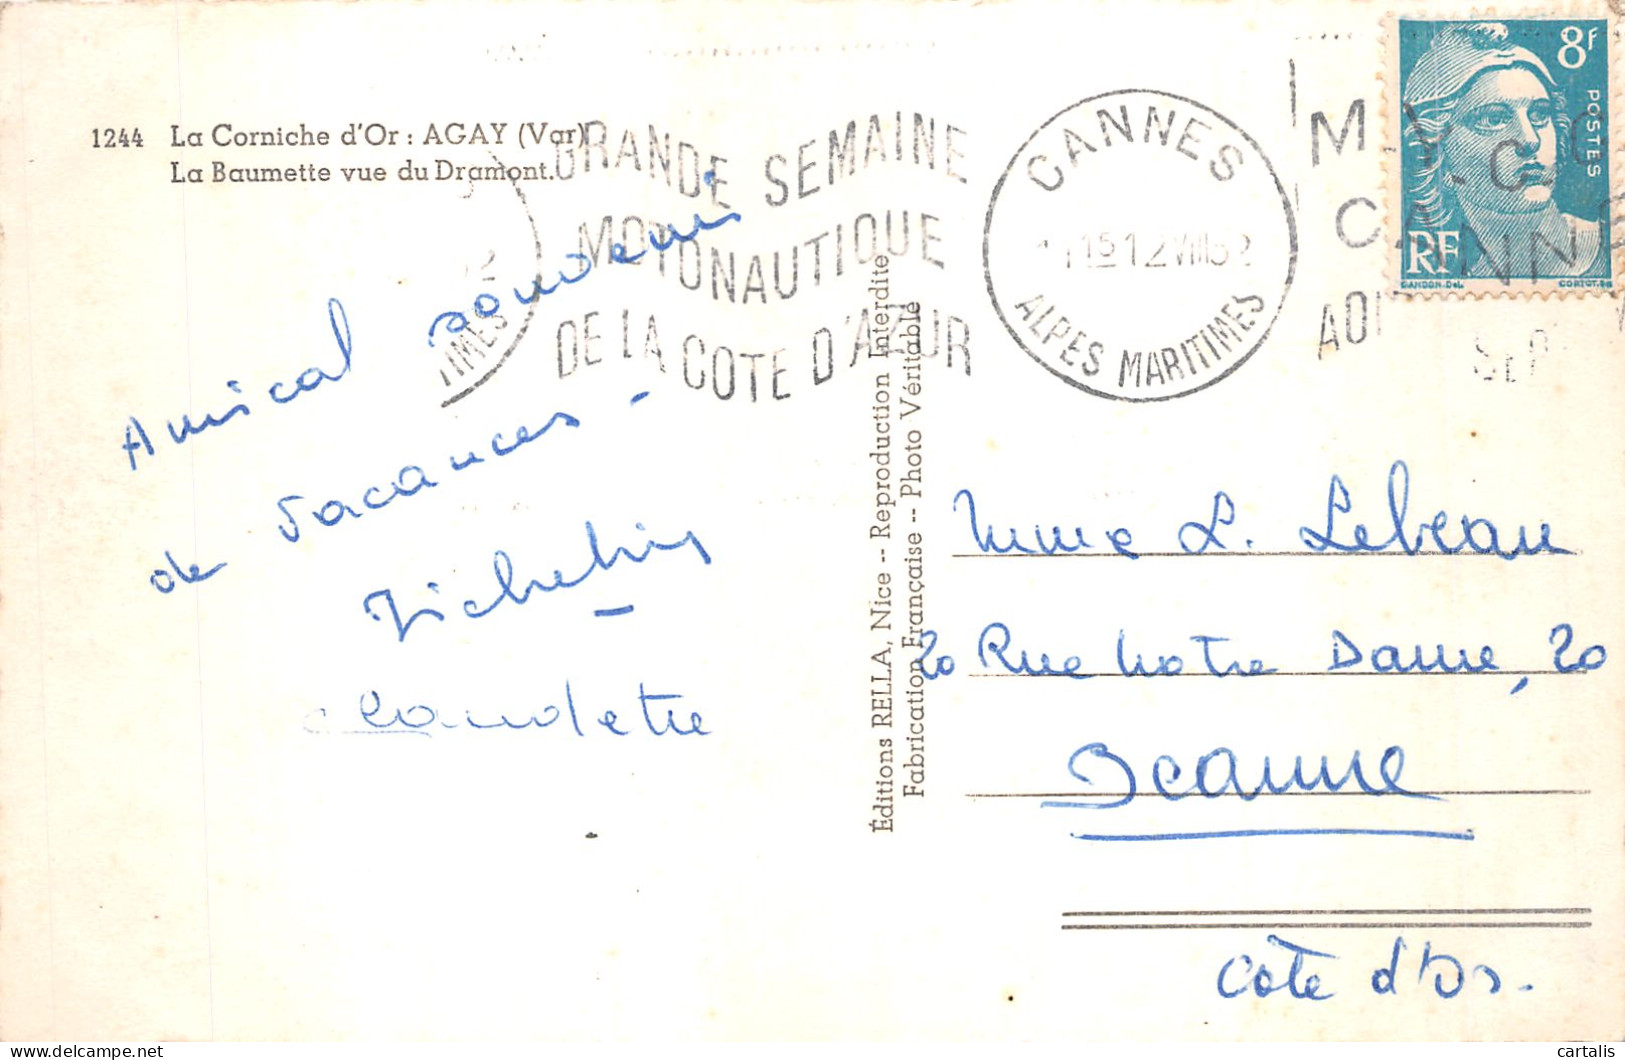 1244 La Corniche d'Or : AGAY (Var)
La Baumette vue du Dramont.
GRANDE SEMAINE
MOTONAUTIQUE
DE LA COTE D'AZUR
TIMES
CANNES
12 VIII 52
ALPES MARITIMES
CANNES
8F
POSTES
RF
GANDON.Del.
CORTOT.Sc
Amical souvenir
de vacances -
Claudette
Éditions RELLA, Nice -- Reproduction Interdite
Fabrication Française -- Photo Véritable
Mme L. Lebeau
20 Rue Notre Dame, 20
Beaune
Côte d'Or.
cartalis